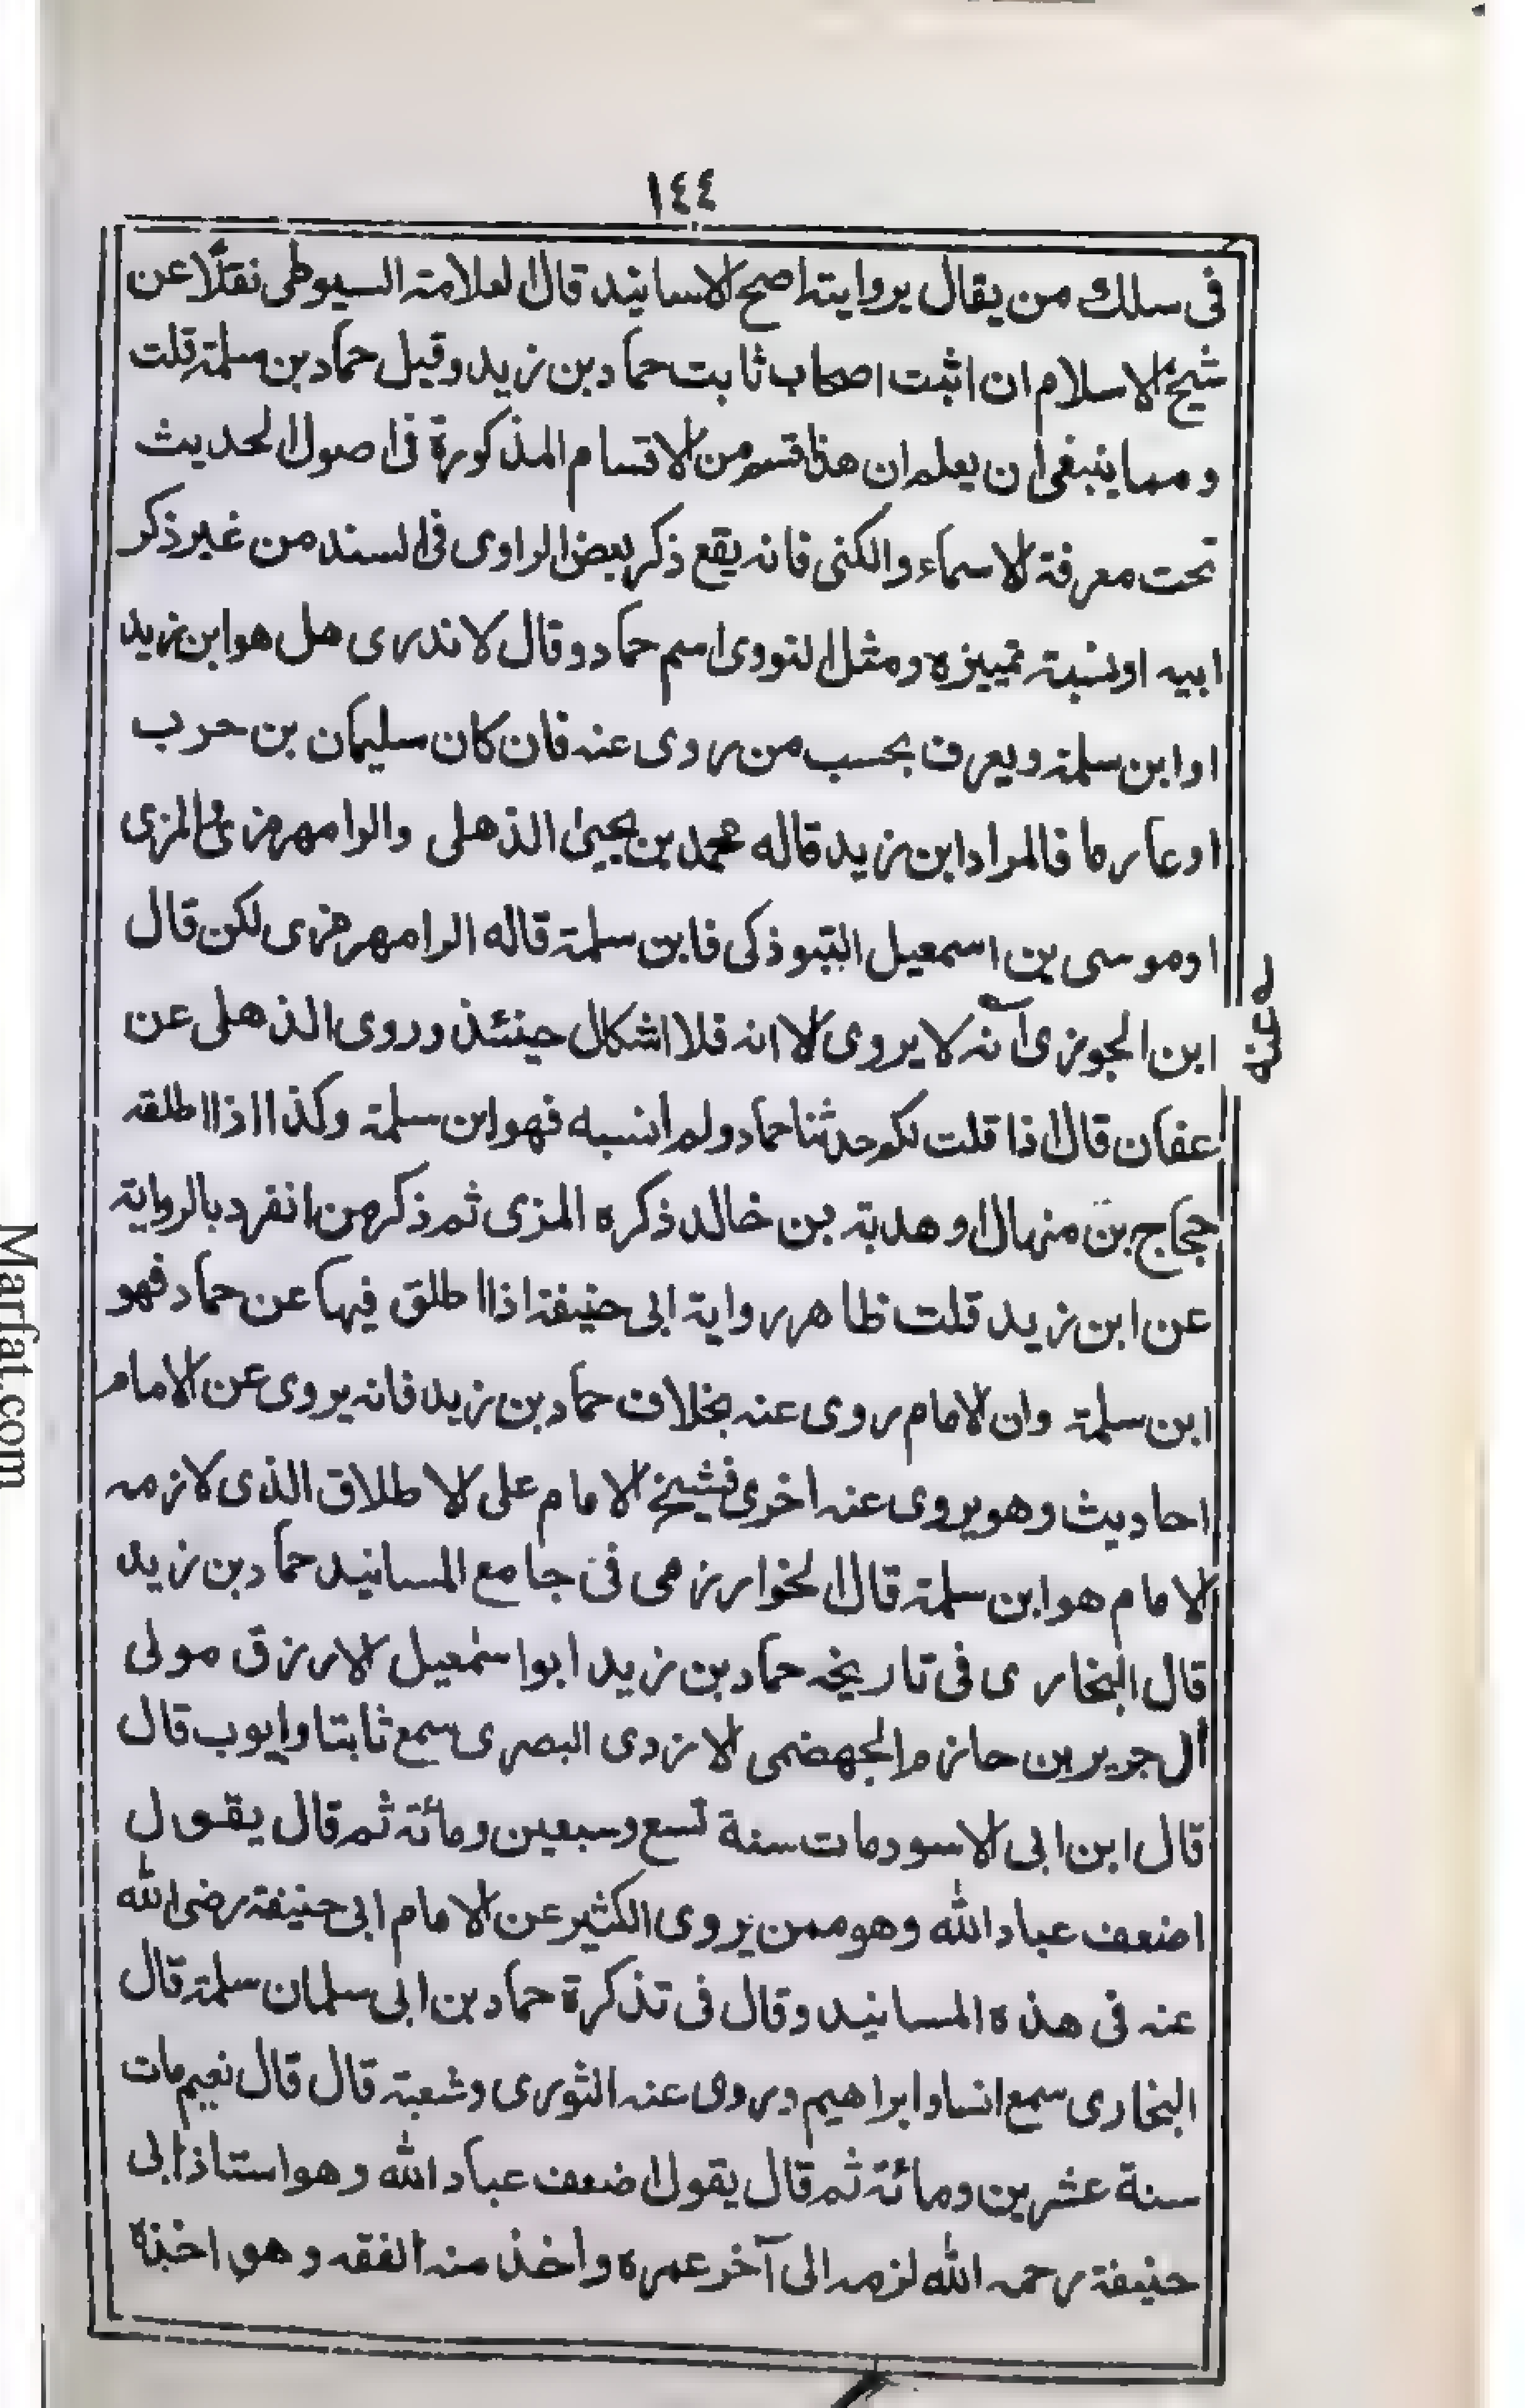 ١٤٤
فى سلك من يقال بروايته اصح الاسانيد قال العلامة السيوطى نقلًا عن
شيخ الاسلام ان اثبت اصحاب ثابت حماد بن زيد وقيل حماد بن سلمة قلت
ومما ينبغى ان يعلم ان هذا قسم من الاقسام المذكورة فى اصول الحديث
تحت معرفة الاسماء والكنى فانه يقع ذكر بعض الراوى فى السند من غير ذكر
ابيه او نسبته تميزه ومثل النووى اسم حماد وقال لا ندرى هل هو ابن زيد
او ابن سلمة ويعرف بحسب من روى عنه فان كان سليمان بن حرب
او عارما فالمراد ابن زيد قاله محمد بن يحيىٰ الذهلى والرامهرمزى والمزى
او موسى بن اسمعيل التبوذكى فابن سلمة قاله الرامهرمزى لكن قال
ابن الجوزى انه لا يروى الا انه فلا اشكال حينئذ وروى الذهلى عن
عنه
عفان قال اذا قلت لكم حدثنا حماد ولم انسبه فهو ابن سلمة وكذا اذا اطلقه
حجاج بن منهال او هدبة بن خالد ذكره المزى ثم ذكر من انفرد بالرواية
عن ابن زيد قلت ظاهر رواية ابى حنيفة اذا اطلق فيها عن حماد فهو
ابن سلمة وان الامام روى عنه بخلاف حماد بن زيد فانه يروى عن الامام
احاديث وهو يروى عنه اخرى فشيخ الامام على الاطلاق الذى لازمه
الامام هو ابن سلمة قال الخوارزمى فى جامع المسانيد حماد بن زيد
قال البخارى فى تاريخه حماد بن زيد ابو اسمٰعيل الارزق مولى
آل جرير بن حازم الجهضمى الازدى البصرى سمع ثابتا وايوب قال
قال ابن ابى الاسود مات سنة تسع وسبعين ومائة ثم قال يقول
اضعف عباد الله وهو ممن يروى الكثير عن الامام ابى حنيفة رضى الله
عنه فى هذه المسانيد وقال فى تذكرة حماد بن ابى سلمان سلمة قال
البخارى سمع انسا وابراهيم وروى عنه الثورى وشعبة قال قال نعيم مات
سنة عشرين ومائة ثم قال يقول اضعف عباد الله وهو استاذ ابى
حنيفة رحمه الله لزمه الى آخر عمره واخذ منه الفقه وهو اخذه
Marfat.com